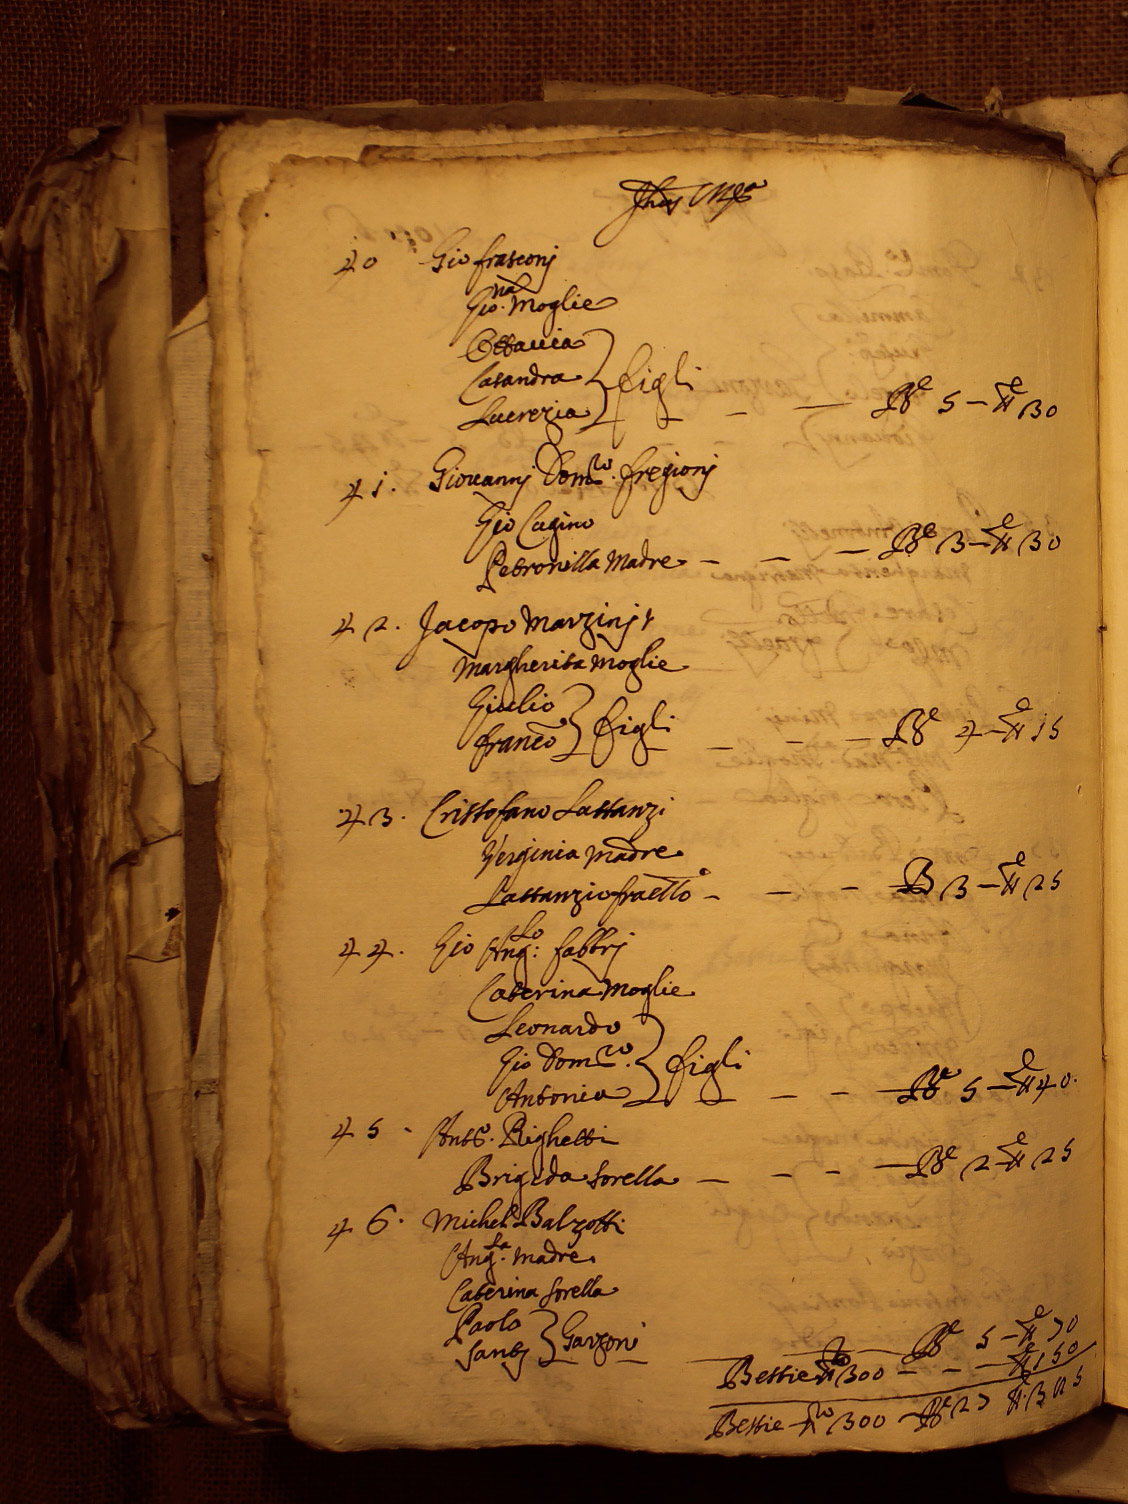 Jhus Mra
40 Gio frasconj
Gio.na Moglie
Ottauia
Casandra } figli
Lucrezia — — Be 5 — 30
41. Giouannj Domco. fregionj
Gio Cugino
Petronilla Madre — — — Be 3 — 30
42. Jacopo Marzinj
Margherita Moglie
Giulio } figli
Franco — — — Be 4 — 15
43. Cristofano Lattanzi
Verginia Madre
Lattanzio fraello — — — B 3 — 25
44. Gio Ang:lo fabbrj
Caterina Moglie
Leonardo
Gio Domco. } figli
Antonia — — — Be 5 — 40.
45 - Anto. Righetti
Brigida Sorella — — — Be 2 — 25
46. Michel Balzotti
Ang.la Madre
Caterina Sorella
Paolo } Garzoni
Santj — Be 5 — 70
Bestie No 300 — — 150
Bestie No 300 — Be 27 385